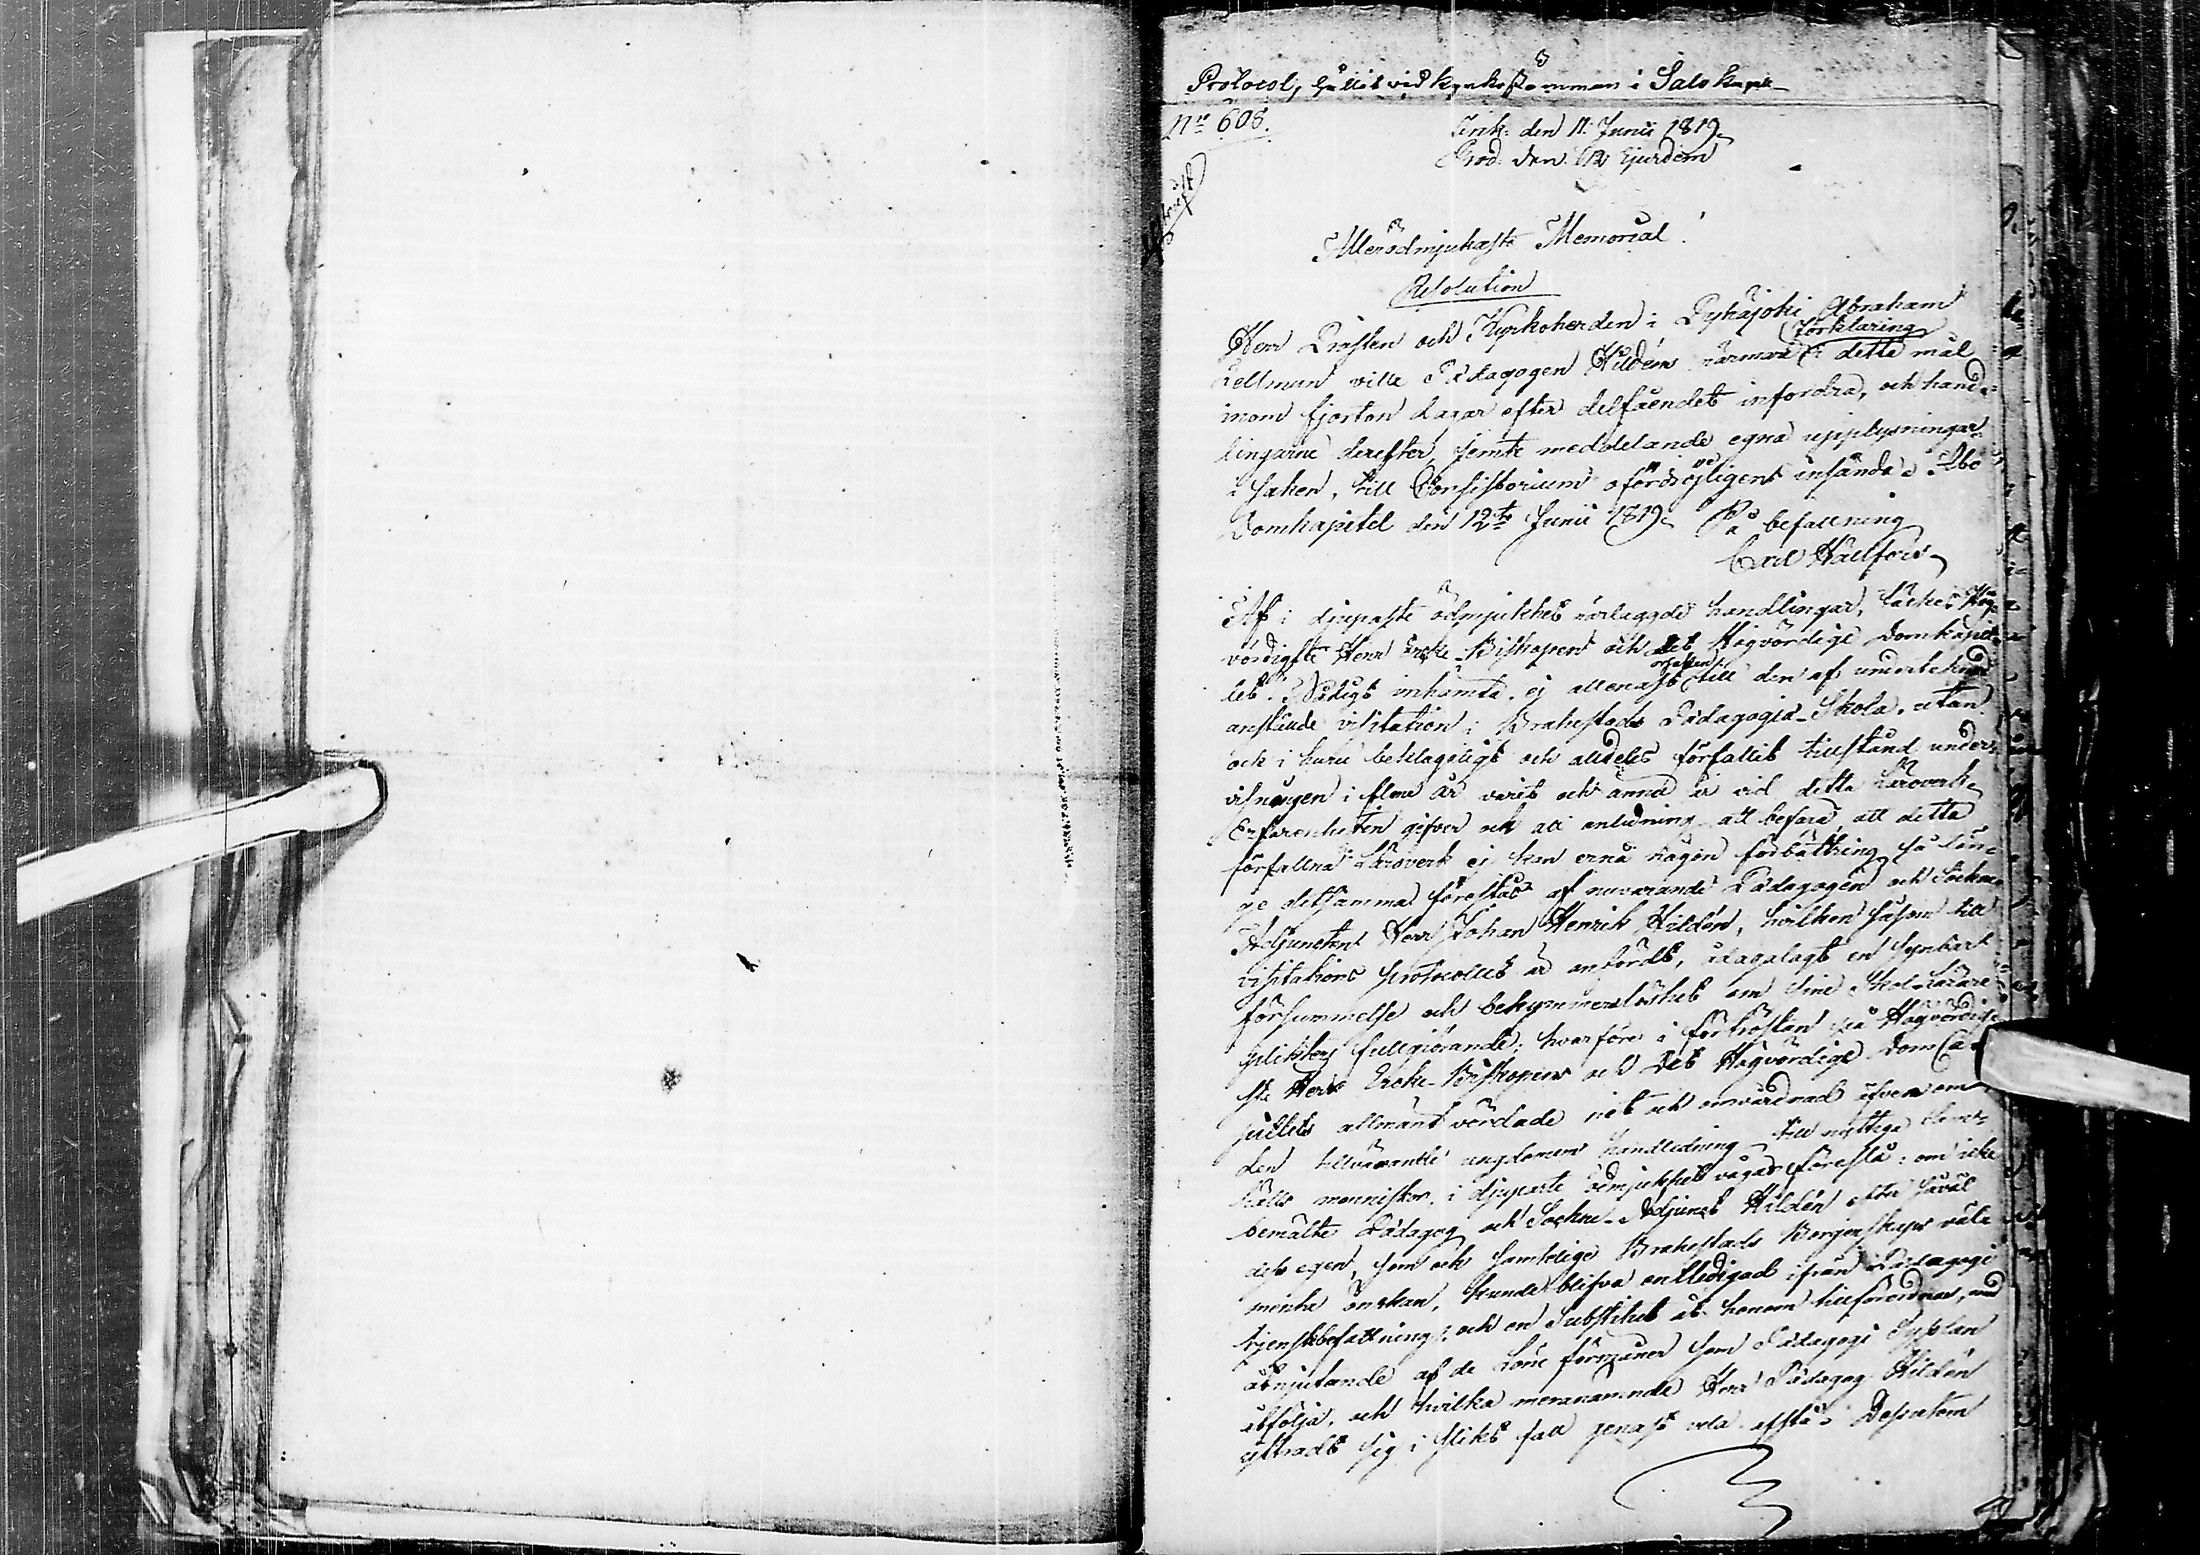 Protocol, hållit vid Kyrkostämman i Salo
No 608.
Ink: den 11 Junii 1819
Prod. den 12 Ejusdem
Allerödmjukaste Memorial!
Resolution
Herr Prosten och Kyrkoherden i Pyhäjoki Abraham
Förklaring
Lellman ville Pædagogen Hildén närmare i detta mål
inom fjorton dagar efter delfåendet infordra, och hand-
lingarne derefter, jemte meddelande egna upplysningar
i saken, till Consistorium ofördröjligent insända. Åbo
Domkapitel den 12te Junii 1819. På befallning
Carl Hällfors
Af i djupaste ödmjukhet närlaggde handlingar, täckes Hög-
vördigste Herr Ercke-Biskopen och det Högvördige Domkapit-
orsaken
let Nådigt inhämta, ej allenast till den af undertecknad
anstälde visitation i Brahestads Pædagogie-Skola, utan
och i huru beklageligt och alldeles förfallit tillstånd under-
visningen i flere år varit och ännu är vid detta Läroverk.
Erfarenheten gifver och all anledning att befara, att detta
förfallna Läroverk ej kan ernå någon förbättring så län-
ge detsamma förestås af nuvarande Pædagogen och Sockne
Adjuncten Herr Johan Henrik Hildén, hvilken såsom till
visitations protocollet är anfördt, ådagalagt en synbart
försummelse och bekymmerslöshet om sine Skol-Lärare
plikters fullgiörande; hvarföre i förtröstan på Högvördig-
ste Herr Ercke-Biskopens och Det Högvördige Dom Ca-
pitlets allmänt vördade nit och omvårdnad äfven om
den tillväxande ungdomens handledning till nyttige
hälls menniskor, i djupaste ödmjukhet vågar föreslå: om icke
bemälte Pædagog och Sockne-Adjunct Hildén efter såväl
dess egen, som och samtelige Brahestads Borgerskaps väl-
mente önskan, kunde blifva entledigad ifrån Pædagogi
tjenstebefattning; och en Substitut åt honom tillförordnas, med
åtnjutande af de Löne förmåner som Pædagogi Sysslan
åtfölja, och hvilka merenämnde Herr Pædagog Hildén
yttradt sig i slikt fall genast vela afstå. Dessutom